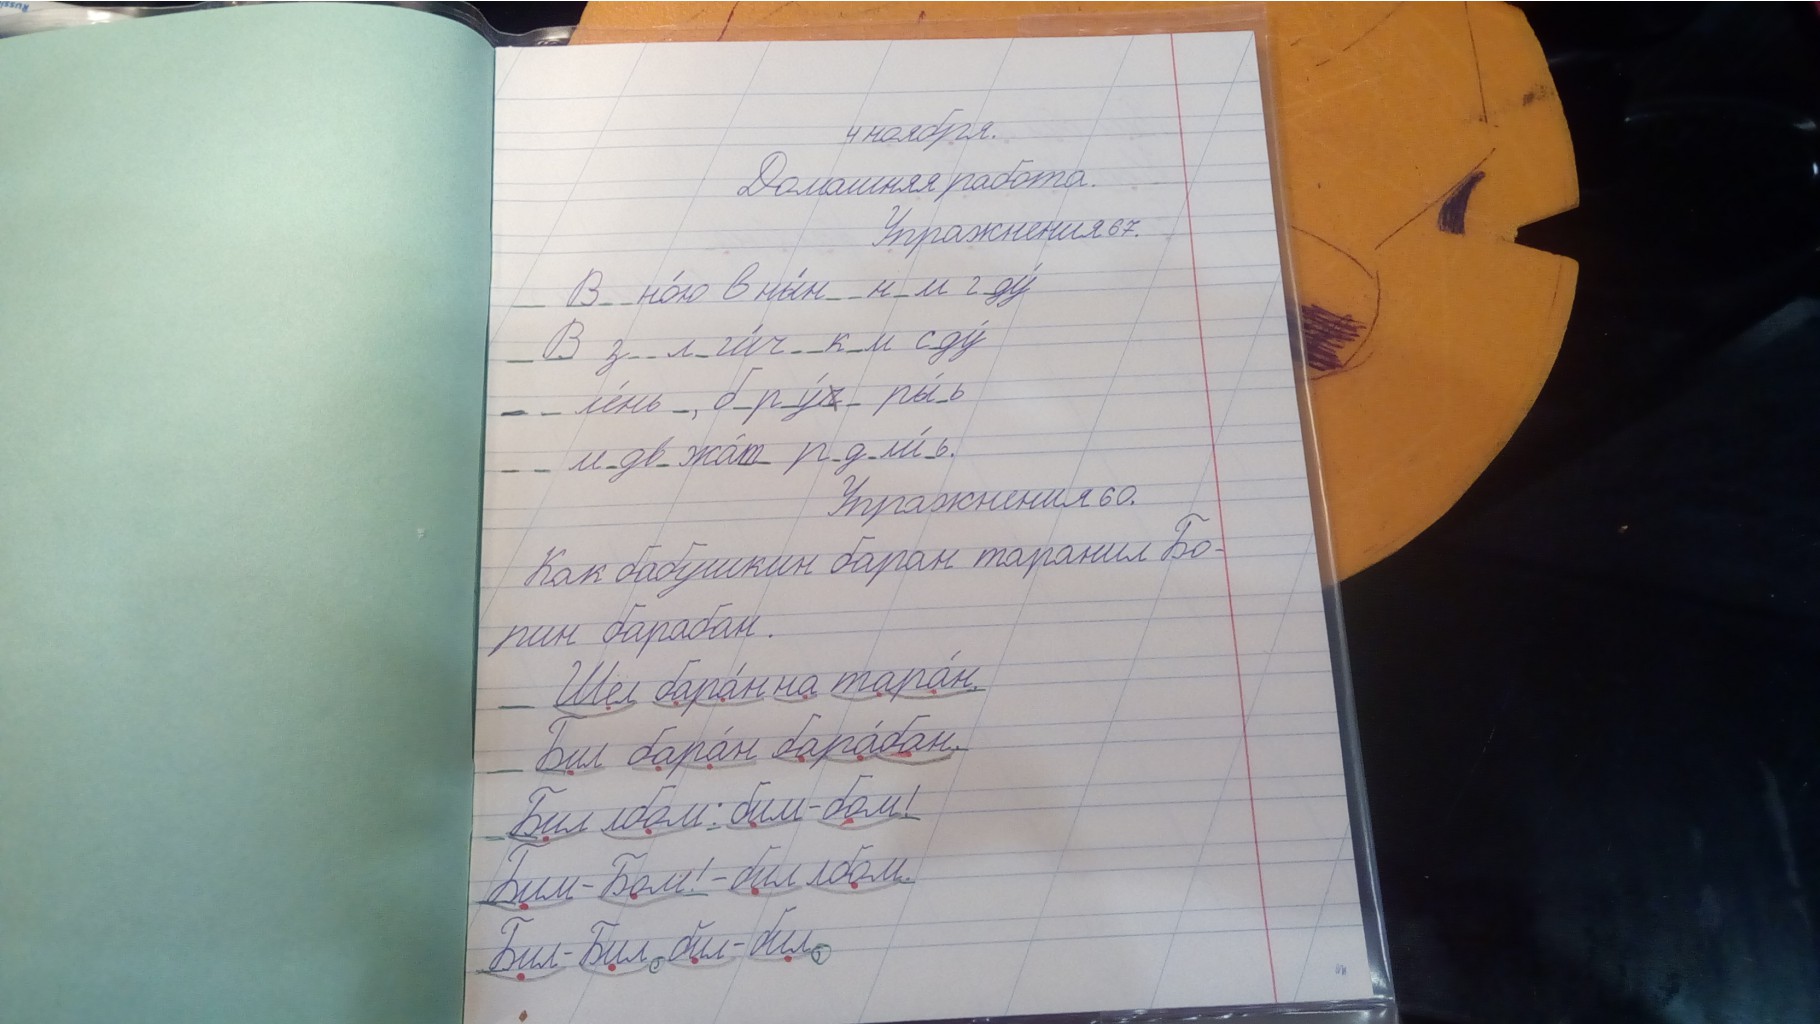 4 ноября.
Домашняя работа.
Упражнения 67.
_ В _ _ но́ю в ны́н _ _ н _ м г _ ду́
_ В з _ _ л _ ги́ч _ _ к _ м с _ ду́
_ _ ле́нь _, б _ р _ у́ч _ ры́ _ ь
_ _ м _ дв _ жа́т _ р _ д _ ли́ _ ь.
Упражнения 60.
Как бабушкин баран таранил Бо-
рин барабан.
_ Шел бара́н на тара́н.
_ Бил бара́н бара́бан.
Бил лбом: бим-бом!
Бим-Бом! - бил лбом.
Бил-Бил, бил-бил